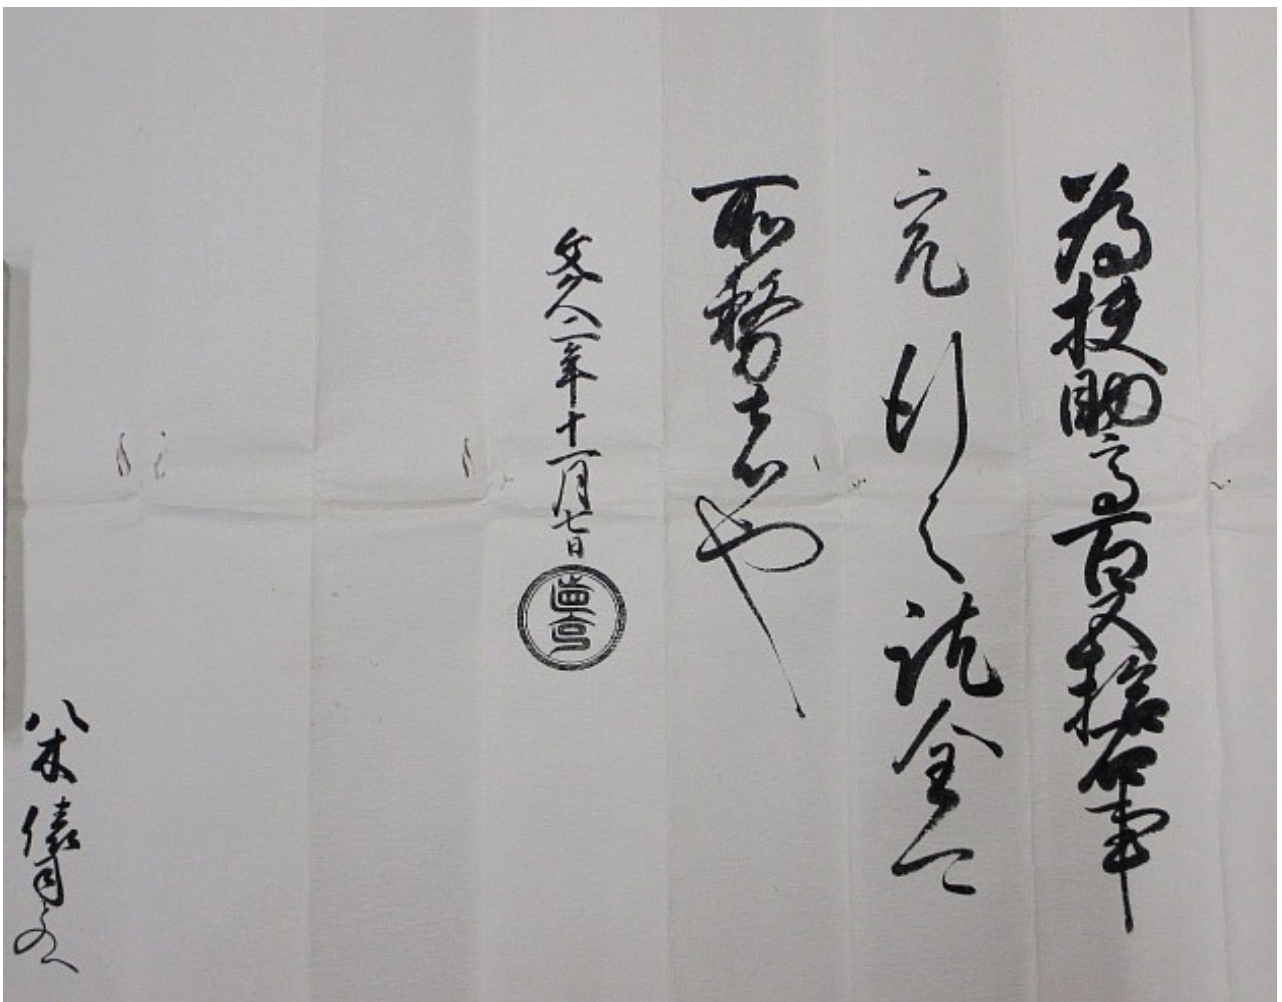 為扶助高百五拾石事
宛行之訖全可
所務者也
文久二年十一月七日
八木